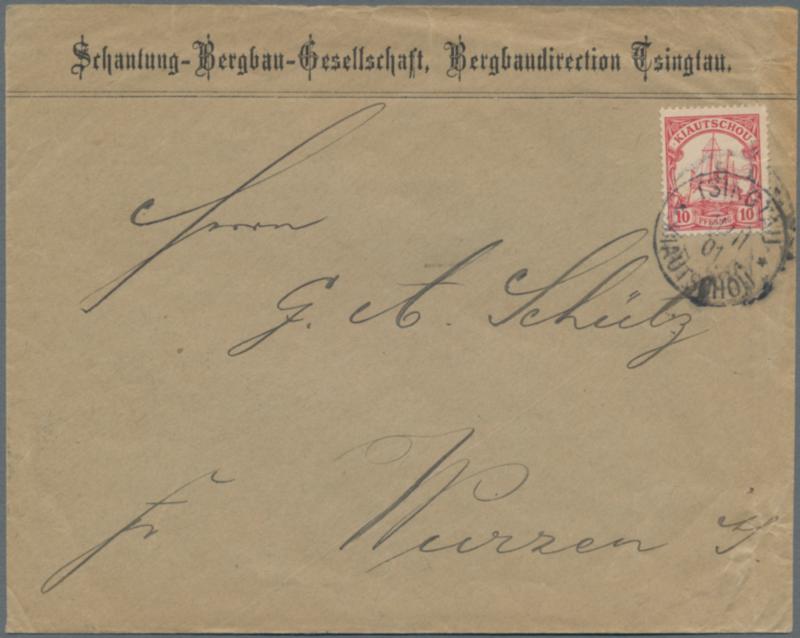 Schantung-Bergbau-Gesellschaft, Bergbaudirection Tsingtau.
KIAUTSCHOU
10 PFENNIG 10
TSINGTAU
01
KIAUTSCHOU
Herrn
G. A. Schütz
Fr Wurzen i/S